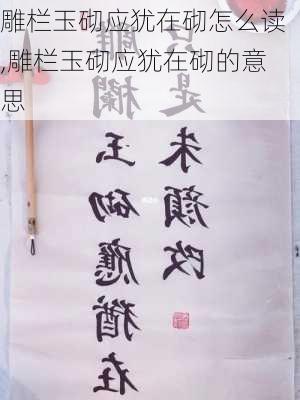 雕栏玉砌应犹在砌怎么读
,雕栏玉砌应犹在砌的意
思
雕欄玉砌應猶在
只是朱顏改